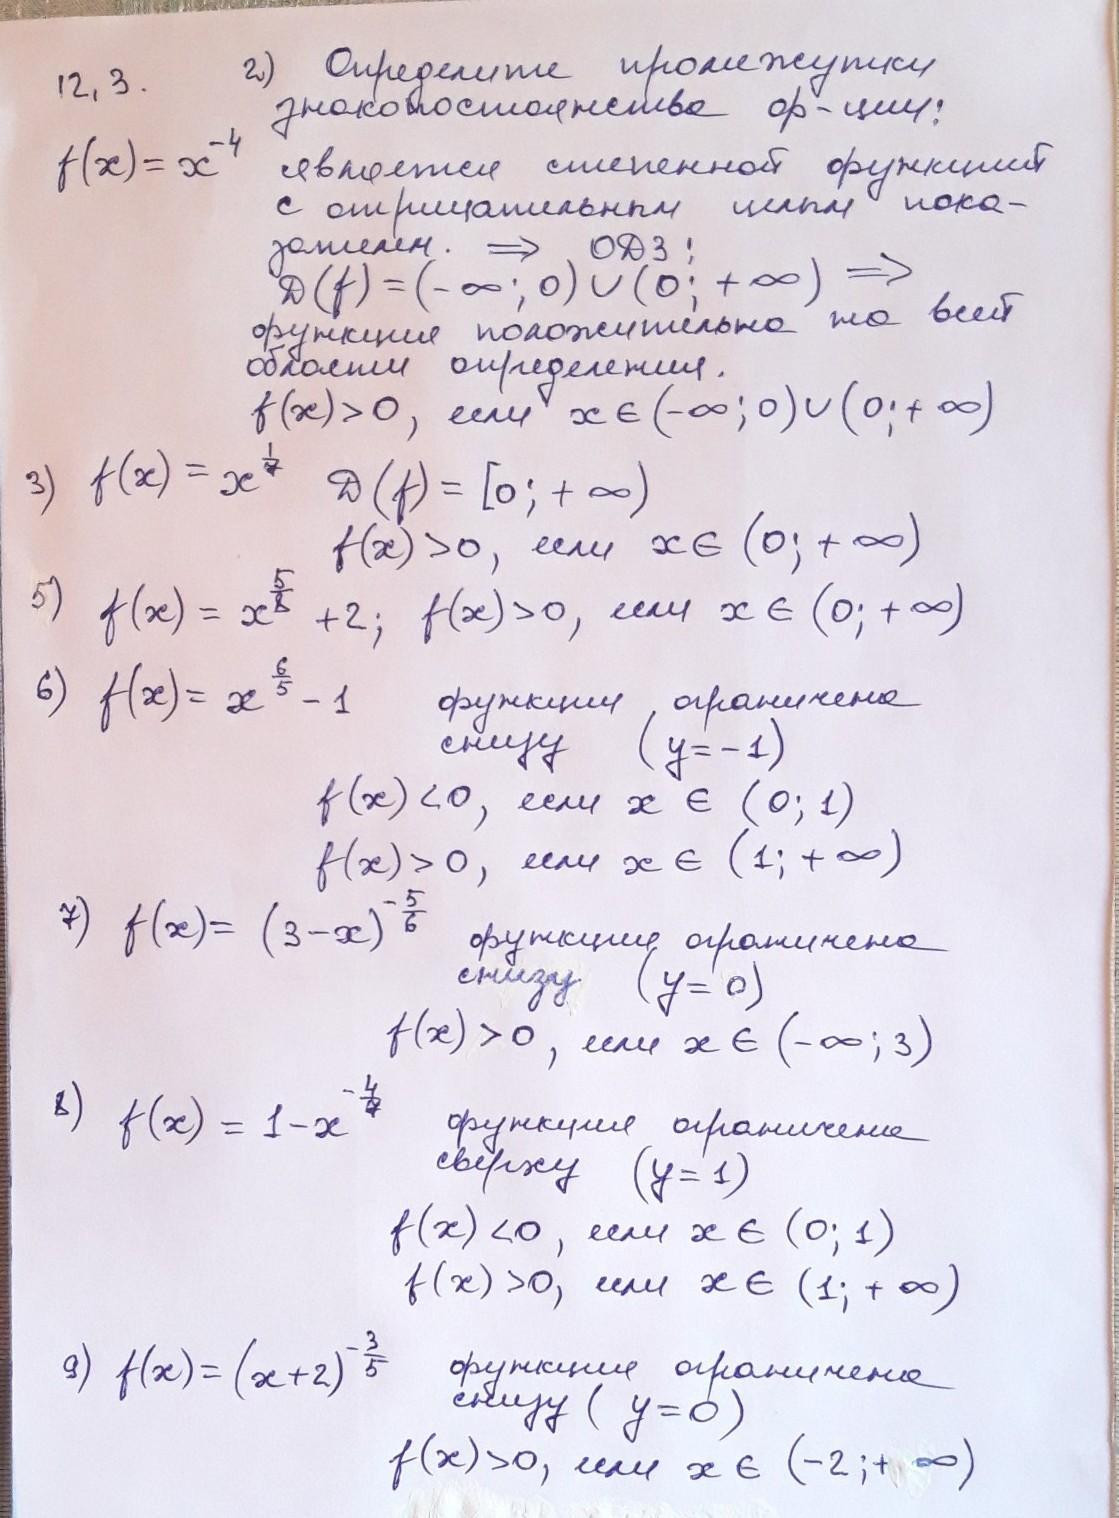 12,3. 2) Определите промежутки
знакопостоянства ф-ции:
f(x) = x^-4 является степенной функцией
с отрицательным целым пока-
зателем. ⇒ ОДЗ:
D(f) = (-∞; 0) ∪ (0; +∞) ⇒
функция положительна на всей
области определения.
f(x) > 0, если x ∈ (-∞; 0) ∪ (0; +∞)
3) f(x) = x^1/7 D(f) = [0; +∞)
f(x) > 0, если x ∈ (0; +∞)
5) f(x) = x^5/8 + 2; f(x) > 0, если x ∈ (0; +∞)
6) f(x) = x^6/5 - 1 функция ограничена
снизу (y = -1)
f(x) < 0, если x ∈ (0; 1)
f(x) > 0, если x ∈ (1; +∞)
7) f(x) = (3-x)^-5/6 функция ограничена
снизу (y = 0)
f(x) > 0, если x ∈ (-∞; 3)
8) f(x) = 1 - x^-4/7 функция ограничена
сверху (y = 1)
f(x) < 0, если x ∈ (0; 1)
f(x) > 0, если x ∈ (1; +∞)
9) f(x) = (x+2)^-3/5 функция ограничена
снизу (y = 0)
f(x) > 0, если x ∈ (-2; +∞)